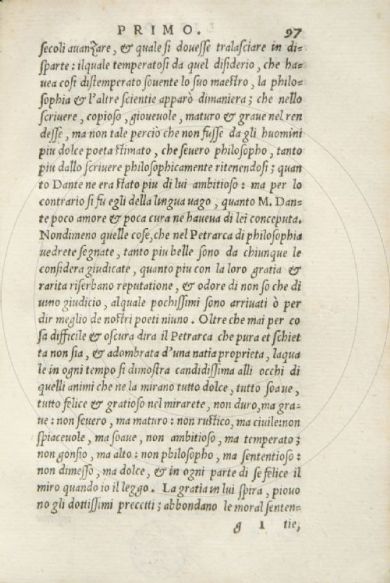 PRIMO. 97
secoli auanzare, & quale si douesse tralasciare in di-
sparte: ilquale temperatosi da quel disiderio, che ha-
uea cosi distemperato souente lo suo maestro, la philo-
sophia & l'altre scientie apparò dimaniera; che nello
scriuere, copioso, gioueuole, maturo & graue nel ren
desse, ma non tale perciò che non fusse da gli huomini
piu dolce poeta stimato, che seuero philosopho, tanto
piu dallo scriuere philosophicamente ritenendosi; quan
to Dante ne era stato piu di lui ambitioso: ma per lo
contrario si fu egli della lingua uago, quanto M. Dan-
te poco amore & poca cura ne haueua di lei conceputa.
Nondimeno quelle cose, che nel Petrarca di philosophia
uedrete segnate, tanto piu belle sono da chiunque le
considera giudicate, quanto piu con la loro gratia &
rarita riserbano reputatione, & odore di non so che di
uino giudicio, alquale pochissimi sono arriuati ò per
dir meglio de nostri poeti niuno. Oltre che mai per co
sa difficile & oscura dira il Petrarca che pura et schiet
ta non sia, & adombrata d'una natia proprieta, laqua
le in ogni tempo si dimostra candidissima alli occhi di
quelli animi che ne la mirano tutto dolce, tutto soaue,
tutto felice & gratioso nel mirarete, non duro, ma gra-
ue: non seuero, ma maturo: non rustico, ma ciuile: non
spiaceuole, ma soaue, non ambitioso, ma temperato;
non gonfio, ma alto: non philosopho, ma sententioso:
non dimesso, ma dolce, & in ogni parte di se felice il
miro quando io il leggo. La gratia in lui spira, piouo
no gli dottissimi precetti; abbondano le moral senten-
g 1 tie,